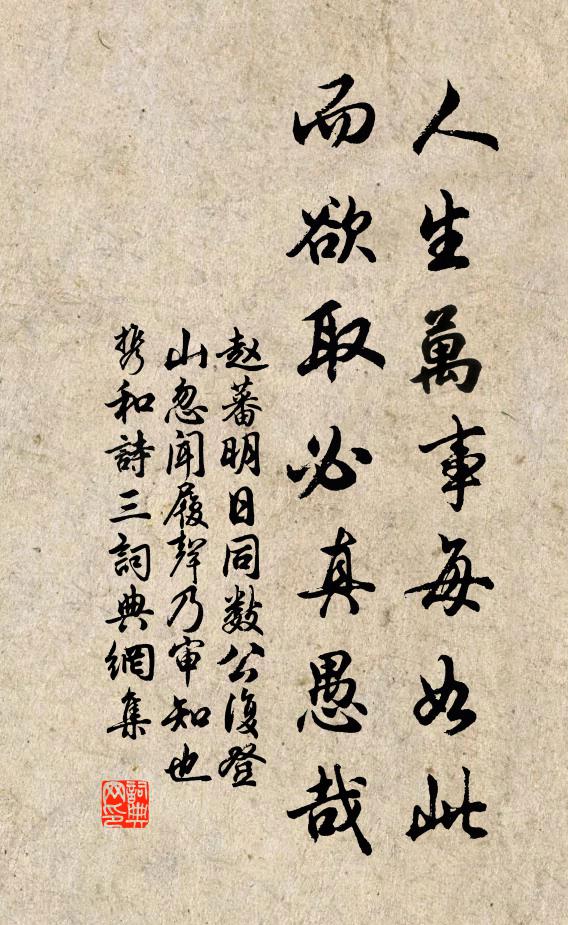 人生萬事每如此
而欲取必真愚哉
赵蕃明日同数公復登
山忽闻履聲乃审知也
携和詩三詞典網集
詞典网印